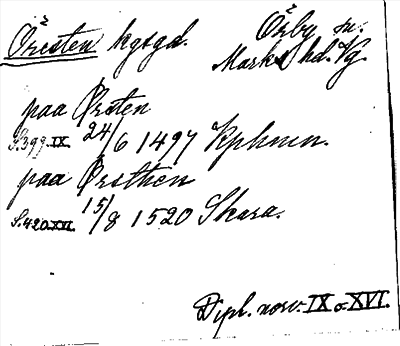 Öresten kgsgd.
Örby sn.
Marks hd. Vg.
paa Ørsten
S. 399 IX. 24/6 1497 Kphmn.
paa Ørsthen
S. 420 XVI. 15/8 1520 Skara.
Dipl. norv. IX o. XVI.